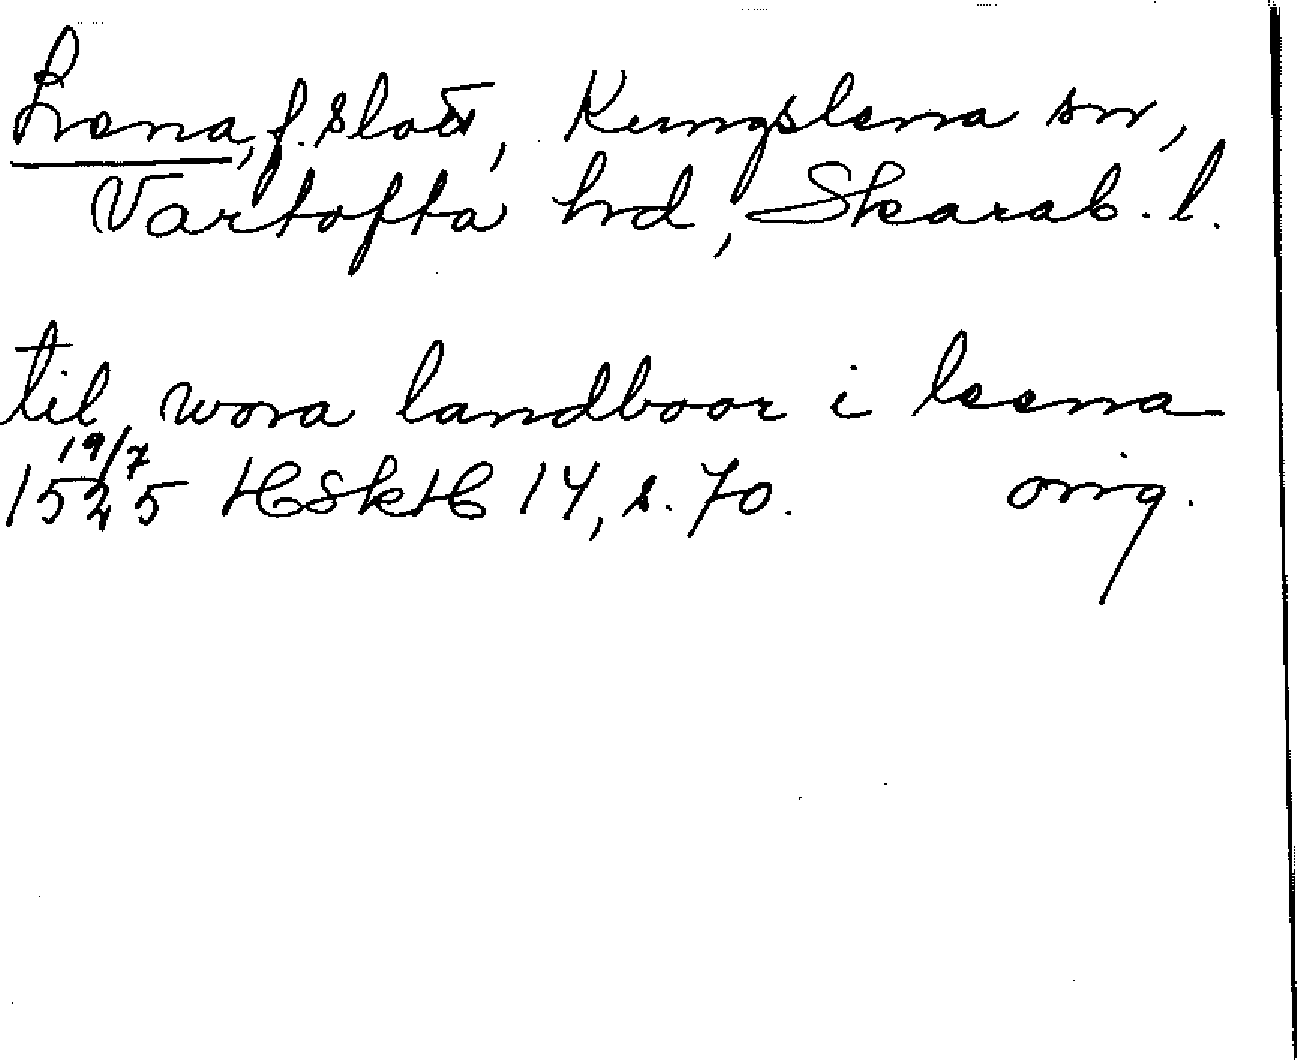 Lena, f. slott, Kungslena sn,
Vartofta hd, Skarab. l.
til wora landboor i leena
19/7
1525 HSkH 14, s. 70. orig.